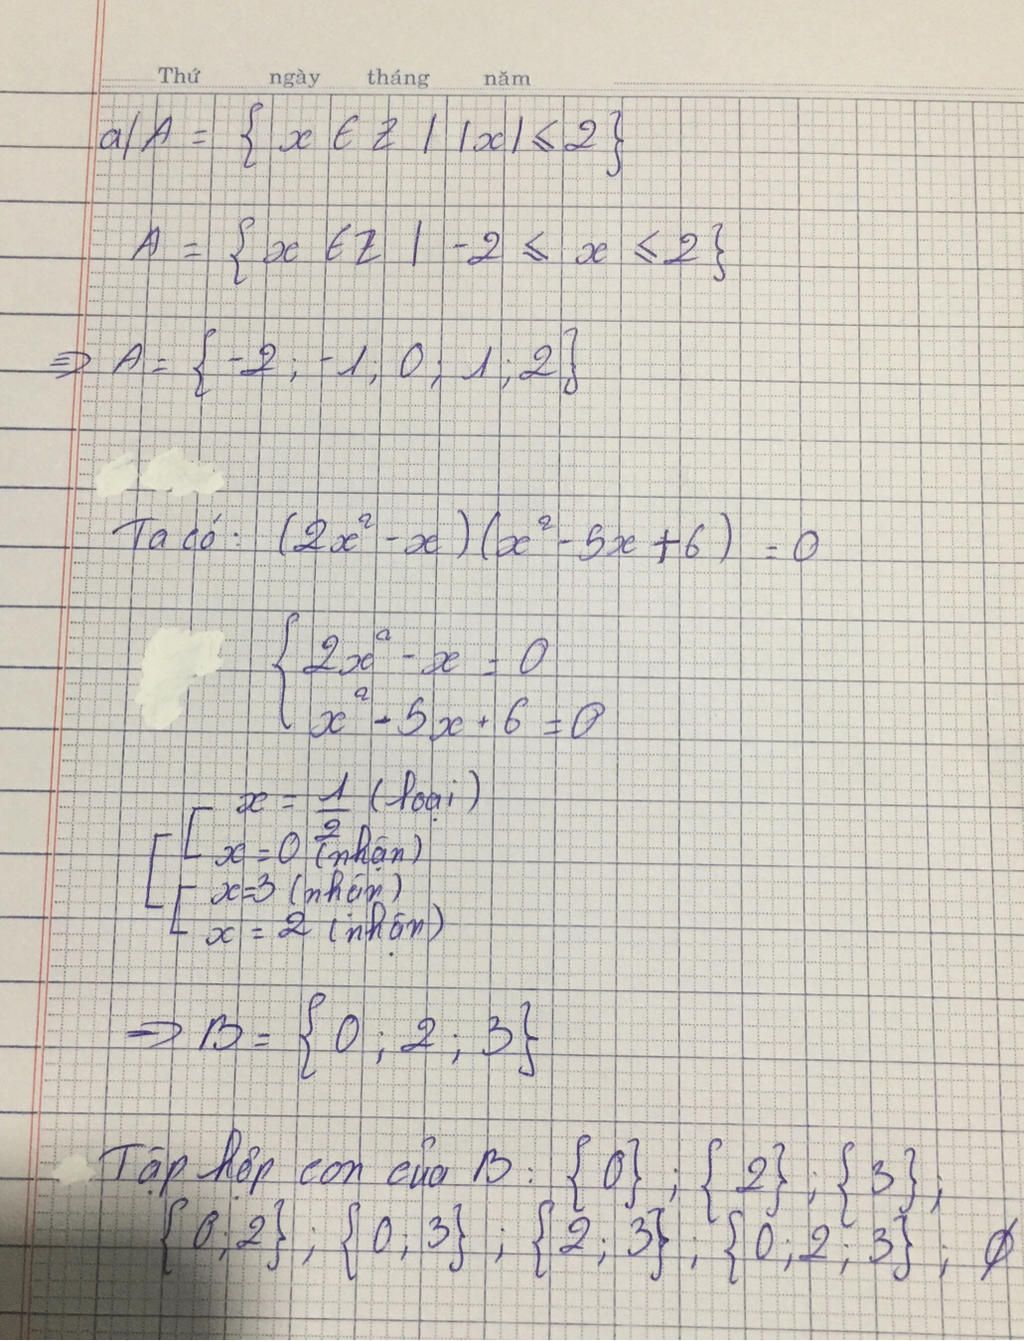 Thứ ngày tháng năm
a/ A = { x ∈ Z | |x| ≤ 2}
A = { x ∈ Z | -2 ≤ x ≤ 2}
=> A = { -2 ; -1 ; 0 ; 1 ; 2}
Ta có : (2x² - x)(x² - 5x + 6) = 0
{ 2x² - x = 0
x² - 5x + 6 = 0
[ [ x = 1/2 (loại)
x = 0 (nhận)
[ x = 3 (nhận)
x = 2 (nhận)
=> B = { 0 ; 2 ; 3}
Tập hợp con của B : {0} ; {2} ; {3} ;
{0; 2} ; {0; 3} ; {2; 3} ; {0; 2; 3} ; ∅